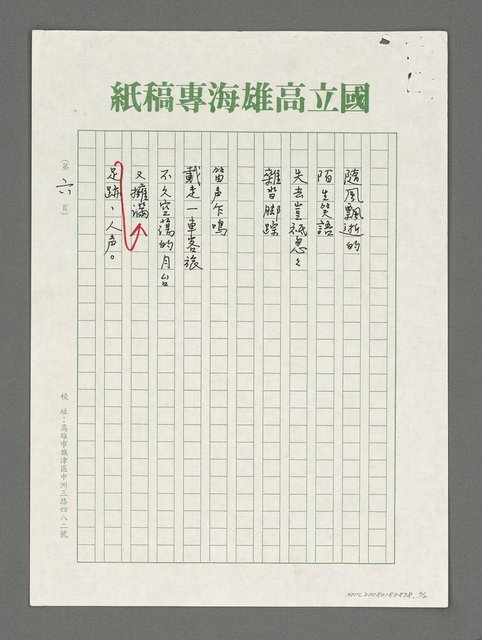 國立高雄海專稿紙
隨風飄逝的
陌生笑語
失去豈祇是
雜沓脚踪
笛声乍鳴
載走一車客旅
不久空蕩的月台
又擁滿
足跡、人声。
(第六頁)
校址:高雄市旗津區中洲三路四八二號